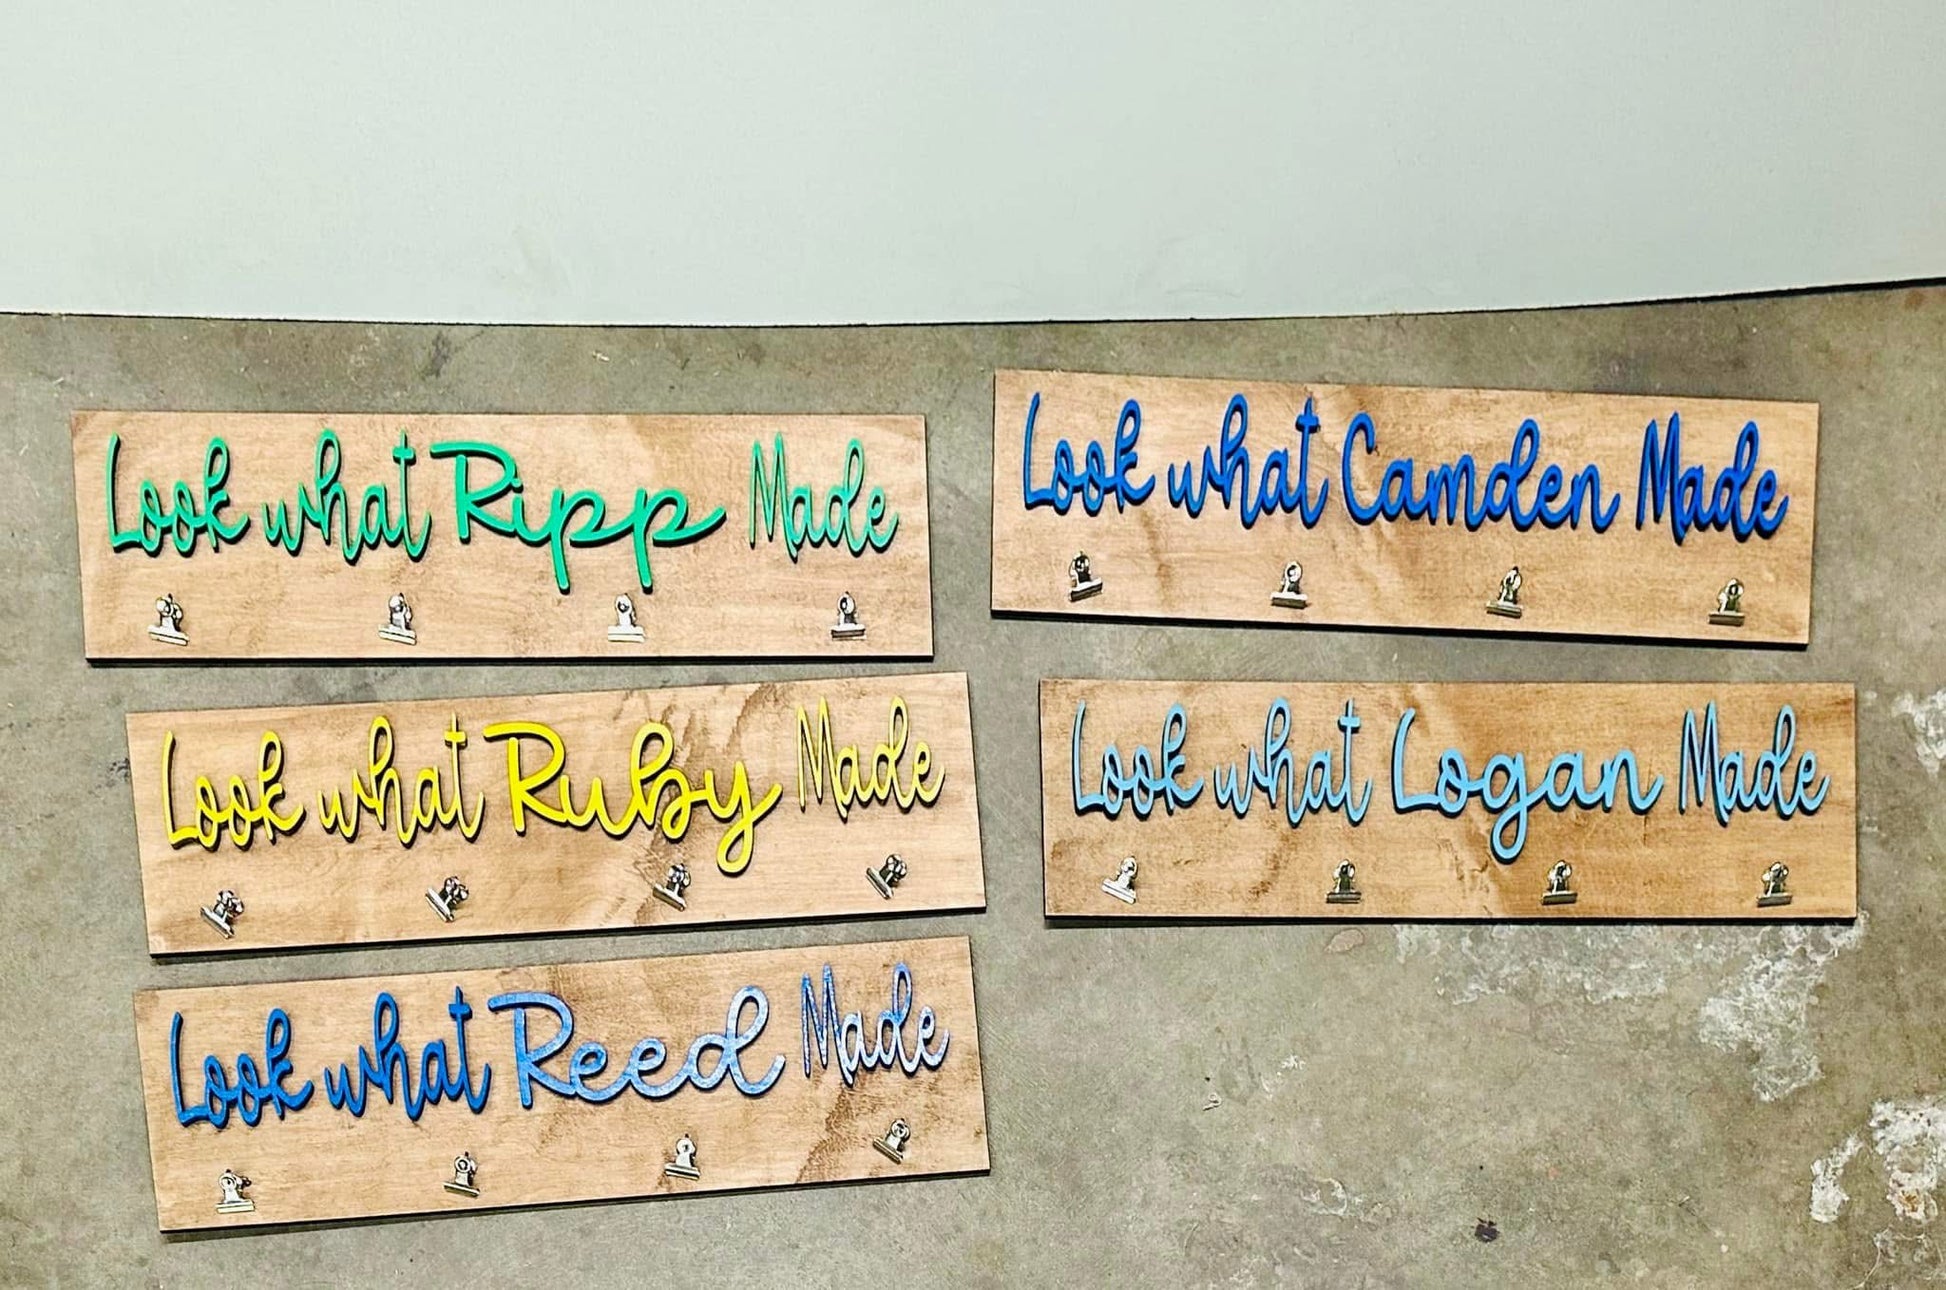 Look what Ripp Made
Look what Camden Made
Look what Ruby Made
Look what Logan Made
Look what Reed Made